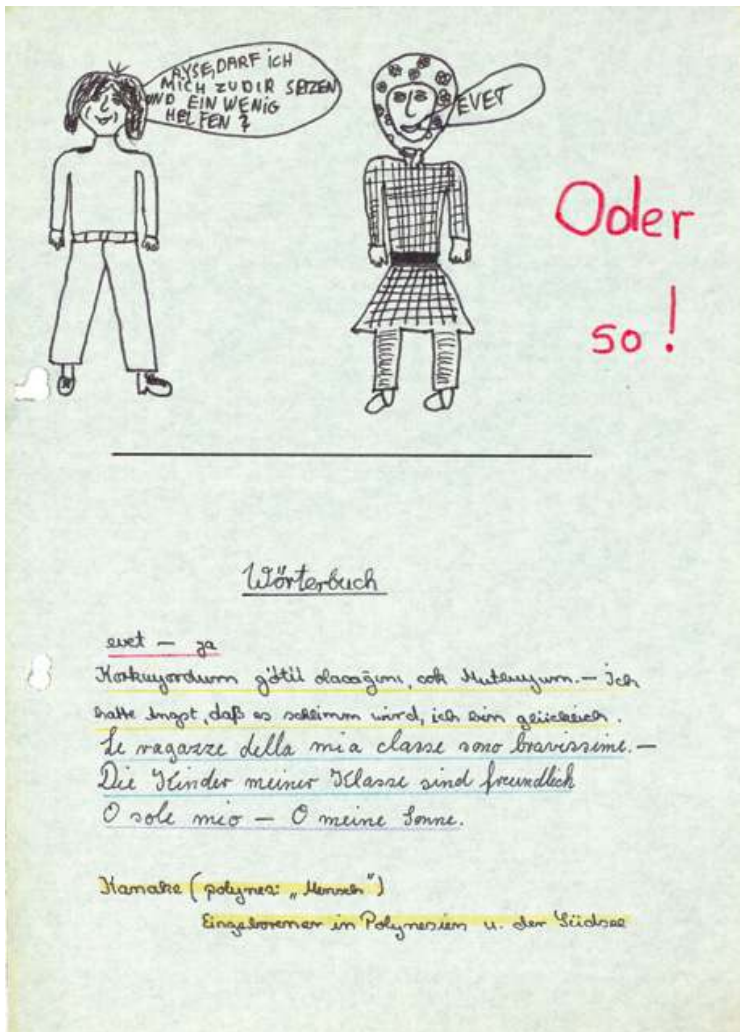 AYSE, DARF ICH
MICH ZU DIR SETZEN
UND EIN WENIG
HELFEN?
EVET
Oder
so!
Wörterbuch
evet – ja
Korkuyordum götü olacağını, cok Mutluyum. – Ich
hatte Angst, daß es schlimm wird, ich bin glücklich.
Le ragazze della mia classe sono bravissime. –
Die Kinder meiner Klasse sind freundlich
O sole mio – O meine Sonne.
Kanake (polynes: „Mensch")
Eingeborener in Polynesien u. der Südsee